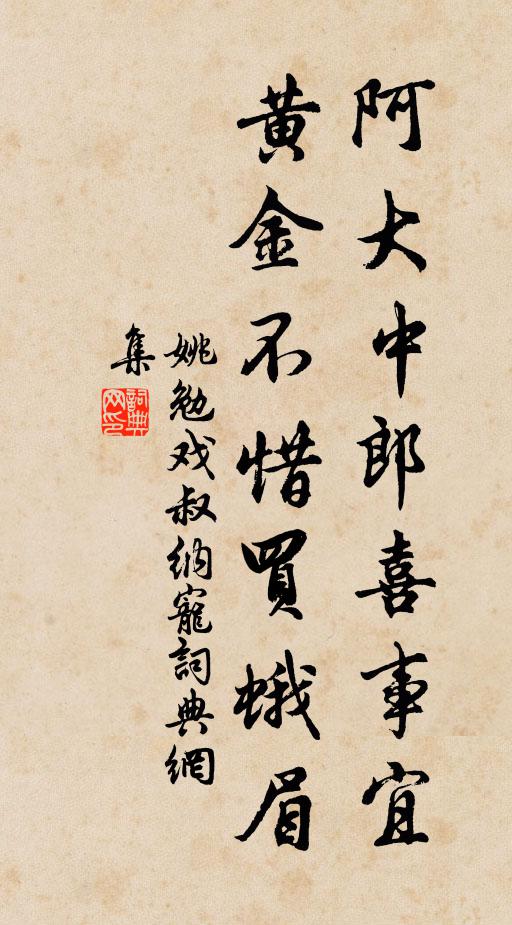 阿大中郎喜事宜
黃金不惜買蛾眉
姚勉戏叔纳寵詞典網
集
詞典
网印